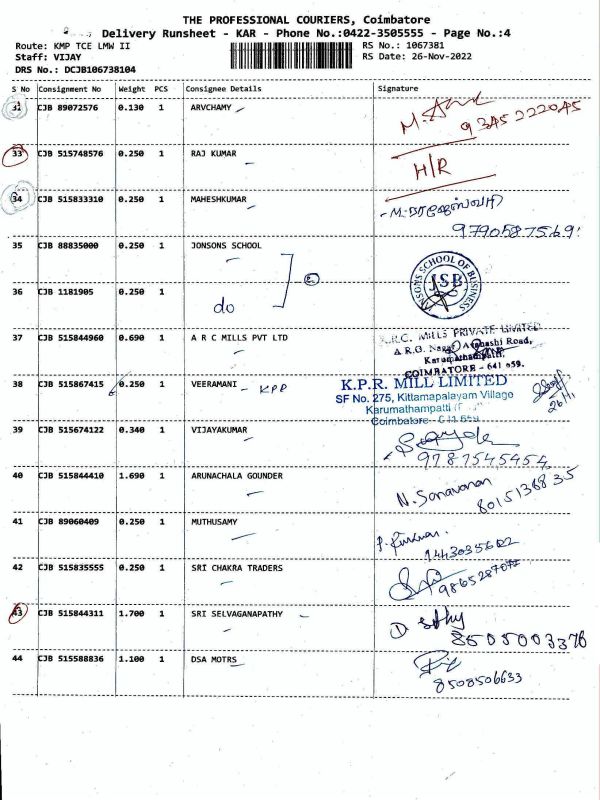 THE PROFESSIONAL COURIERS, Coimbatore
Delivery Runsheet - KAR - Phone No.:0422-3505555 - Page No.:4
Route: KMP TCE LMW II
RS No.: 1067381
Staff: VIJAY
RS Date: 26-Nov-2022
DRS No.: DCJB106738104
S No Consignment No Weight PCS Consignee Details Signature
32 CJB 89072576 0.130 1 ARVCHAMY
9345222045
33 CJB 515748576 0.250 1 RAJ KUMAR
H/R
34 CJB 515833310 0.250 1 MAHESHKUMAR
9790587569
35 CJB 88835000 0.250 1 JONSONS SCHOOL
JONSONS SCHOOL OF BUSINESS
JSB
36 CJB 1181905 0.250 1 do
37 CJB 515844960 0.690 1 A R C MILLS PVT LTD
A.R.C. MILLS PRIVATE LIMITED
A.R.G. Nagar, Avinashi Road,
Karumathampatti,
COIMBATORE - 641 659.
38 CJB 515867415 0.250 1 VEERAMANI - KPP
K.P.R. MILL LIMITED
SF No. 275, Kittamapalayam Village
Karumathampatti
Coimbatore - 641 659
39 CJB 515674122 0.340 1 VIJAYAKUMAR
9787545454
40 CJB 515844410 1.690 1 ARUNACHALA GOUNDER
N. Saravanan
8015136835
41 CJB 89060409 0.250 1 MUTHUSAMY
42 CJB 515835555 0.250 1 SRI CHAKRA TRADERS
43 CJB 515844311 1.700 1 SRI SELVAGANAPATHY
44 CJB 515588836 1.100 1 DSA MOTRS
8508506633